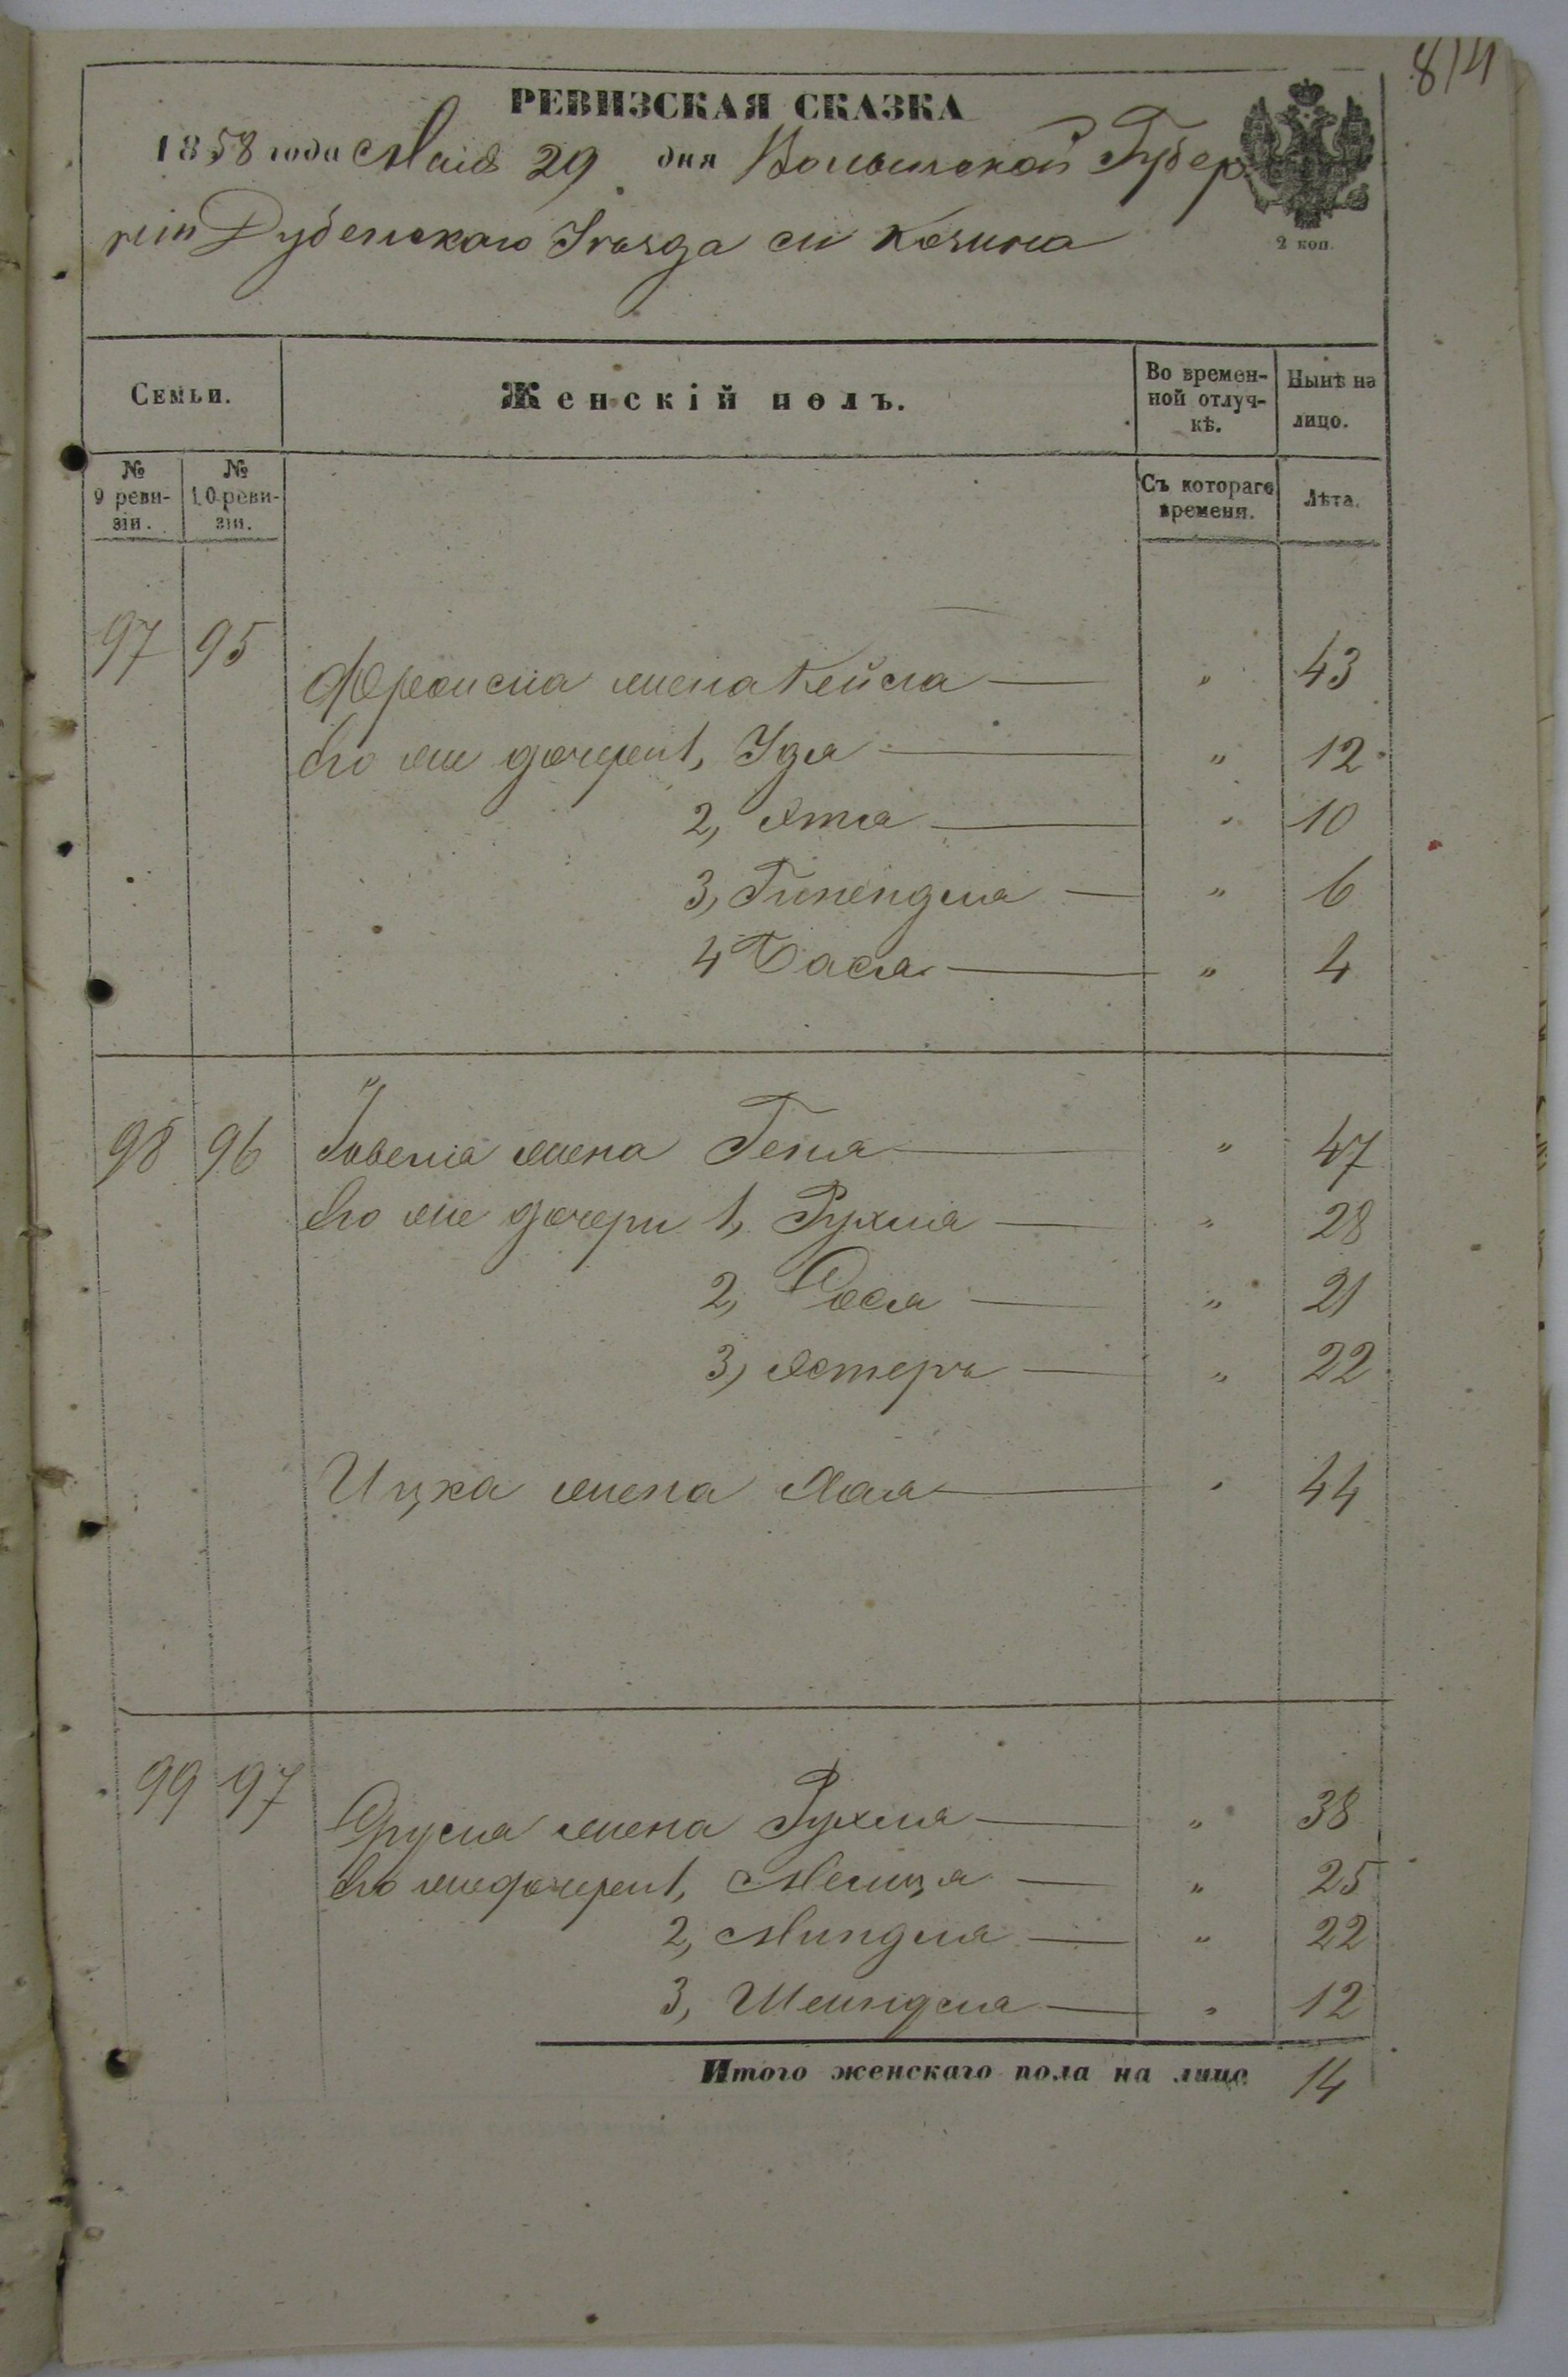 814
РЕВИЗСКАЯ СКАЗКА
1858 года Маія 29 дня Волынской Губер
ніи Дубенскаго Уѣзда м Козина
2 коп.
Семьи.
Женскій полъ.
Во времен-
ной отлуч-
кѣ.
Нынѣ на
лицо.
№
9 реви-
зіи.
№
10 реви-
зіи.
Съ котораго
времени.
Лѣта.
97 95
жена Кейла — „ 43
Его же дочери 1, Удя — „ 12
2, Этля — „ 10
3, — „ 6
4 Бася — „ 4
98 96 жена Геня — „ 47
Его же дочери 1, Рухля — „ 28
2, Рося — „ 21
3, Эстеръ — „ 22
Ицка жена Хая — „ 44
99 97 Сруля жена Рухля — „ 38
Его же дочери 1, — „ 25
2, Миндля — „ 22
3, Шейндля — „ 12
Итого женскаго пола на лицо 14